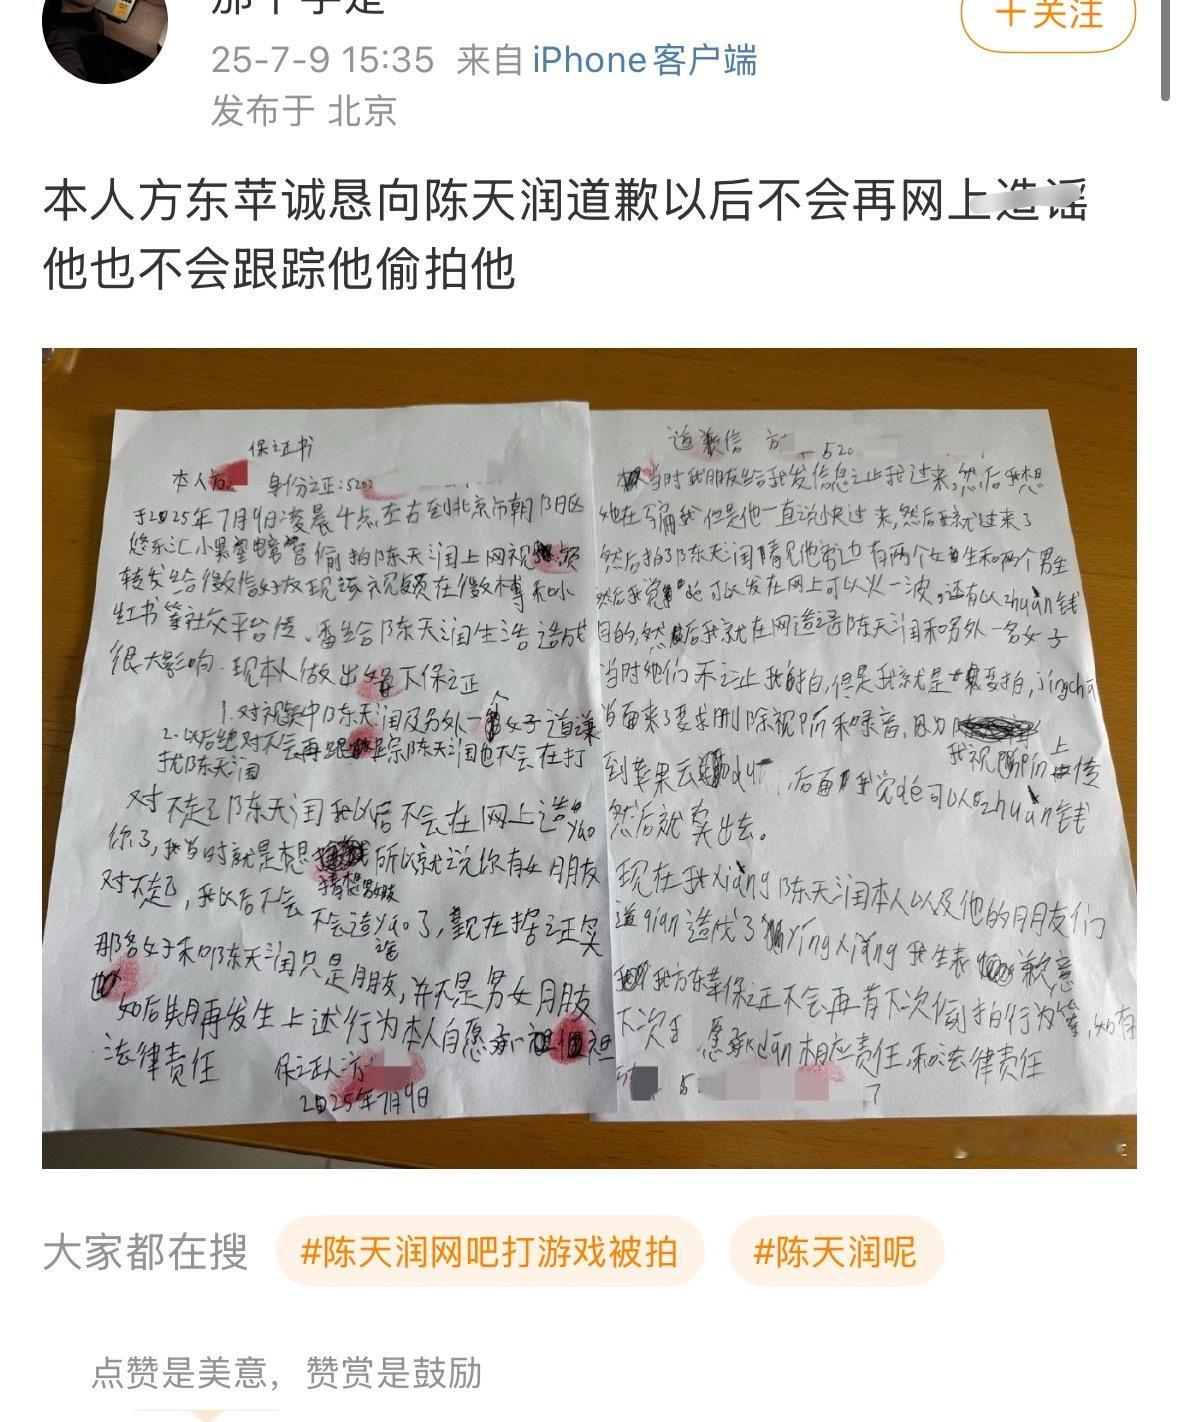 25-7-9 15:35 来自 iPhone客户端
+关注
发布于 北京
本人方东苹诚恳向陈天润道歉以后不会再网上造谣
他也不会跟踪他偷拍他
保证书
本人方 身份证:520
于2025年7月9日凌晨4点左右到北京市朝阳区
偷拍陈天润上网视频
转发给微信好友现该视频在微博和小
红书等社交平台传
很大影响.现本人做出如下保证
1.对视频中陈天润及另外一个女子道谦
2.以后绝对不会再跟踪陈天润也不会在打
扰陈天润
对不起了陈天润我以后不会在网上造yao
你了,我当时就是想 所以就说你有女朋友
对不起,我以后不会 不会造yao了,现在据证实
那名女子和陈天润只是朋友,并不是男女朋友
如后期再发生上述行为本人自愿承担
法律责任
保证人:方
2025年7月9日
道歉信 方 520
当时我朋友给我发信息让我过来,然后我想
她在骗我但是他一直说快过来,然后我就过来了
然后拍了陈天润看见他旁边有两个女生和两个男生
然后我觉de可以发在网上可以火一波,还有以zhuàn钱
目的,然后我就在网造谣陈天润和另外一名女子
当时她们不让我拍,但是我就是要拍,jingcha
当面来了要求删除视pin和录音,因为
我视pin上传
到苹果云 ,后面我觉de可以zhuàn钱
然后就卖出去。
现在我xiàng陈天润本人以及他的朋友们
道qian造成了yingxiang我生表歉意
我方东苹保证不会再有下次偷拍行为等,如有
下次 愿承dan相应责任,和法律责任
大家都在搜 #陈天润网吧打游戏被拍 #陈天润呢
点赞是美意，赞赏是鼓励